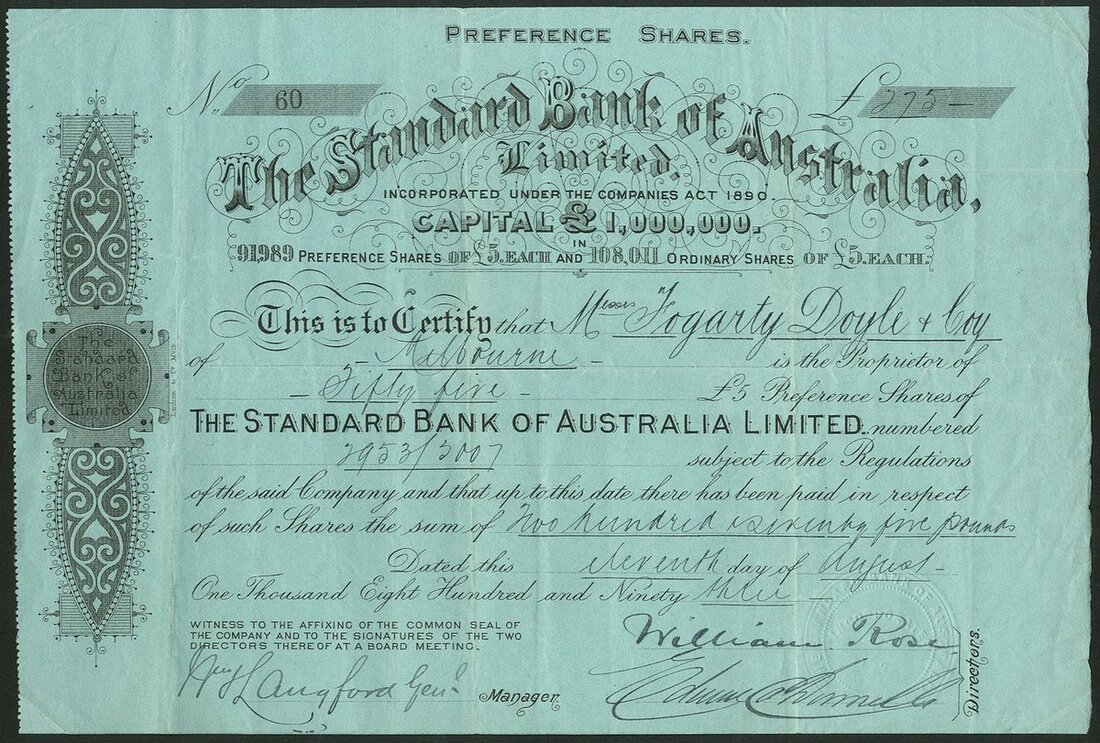 PREFERENCE SHARES.
No 60
£ 275 —
The Standard Bank of Australia,
Limited.
INCORPORATED UNDER THE COMPANIES ACT 1890.
CAPITAL £1,000,000.
IN
91989 PREFERENCE SHARES OF £5. EACH AND 108,011 ORDINARY SHARES OF £5. EACH.
This is to Certify that Messrs Fogarty Doyle & Coy
of - Melbourne - is the Proprietor of
- Fifty five - £5 Preference Shares of
THE STANDARD BANK OF AUSTRALIA LIMITED. numbered
2953/3007 subject to the Regulations
of the said Company and that up to this date there has been paid in respect
of such Shares the sum of Two hundred & seventy five pounds
Dated this eleventh day of August -
One Thousand Eight Hundred and Ninety three -
WITNESS TO THE AFFIXING OF THE COMMON SEAL OF
THE COMPANY AND TO THE SIGNATURES OF THE TWO
DIRECTORS THEREOF AT A BOARD MEETING.
William Rose
Langford Genl Manager.
Directors.
The
Standard
Bank of
Australia
Limited